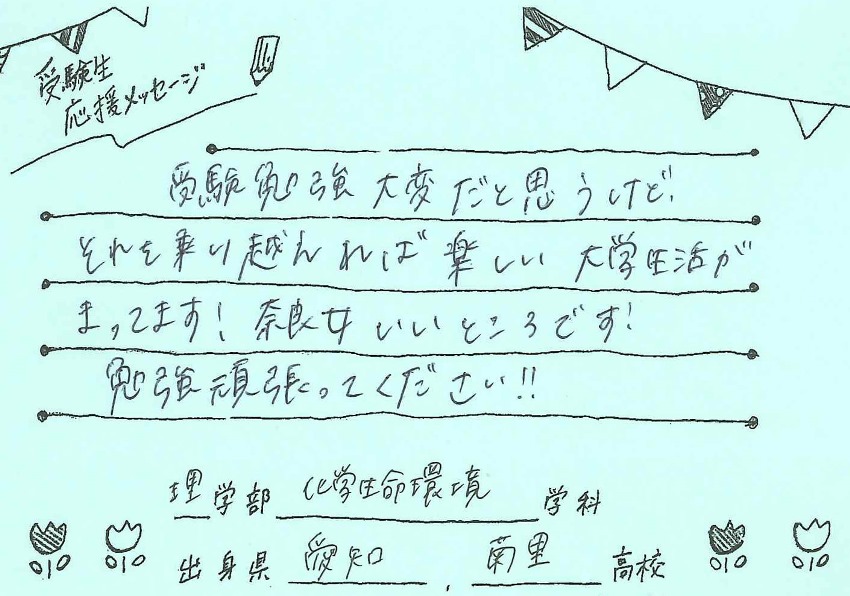 受験生
応援メッセージ
受験勉強 大変だと思うけど、
それを乗り越えれば 楽しい 大学生活が
まってます! 奈良女 いいところです!
勉強頑張ってください!!
理学部 化学生命環境 学科
出身県 愛知 , 南里 高校